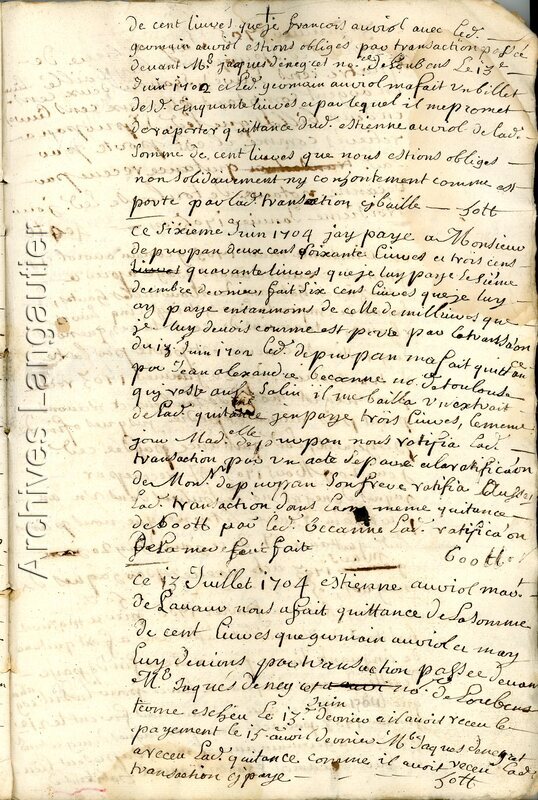 de cent livres que je francois auriol avec led.
germain auriol estions obliges par transaction passée
devant Me jaques denegret nore de Loubens Le 13e
Juin 1702 et Led. germain auriol ma fait un billet
de cinquante livres et par lequel il me promet
de raporter quittance dud. estienne auriol de lad.
somme de cent livres que nous estions obliges
non solidairement ny conjointement comme est
porté par lad. transaction cy baille
ce sixieme Juin 1704 jay payé a Monsieur
de puropan deux cens soixante livres et trois cens
livres quarante livres que je luy payé le
decembre dernier fait six cens livres que je luy
ay payé entanmons de celle de mil livres que
je luy devois comme est porté par la transaon
du 13e Juin 1702 led. de puropan ma fait quittance
par Jean alexandre becanne no. de toulouse
qui reste aus Salin il me bailla un extrait
de Lad. quitance jen paye trois livres, le meme
jour Madelle de puropan nous ratifia Lad.
transaction par un acte separé a la ratificaon
de Monr. de puropan son frere ratifia
Lad. transaction dans la meme quitance
de 600tt par led. becanne Lad. ratificaon
de la meme feut faite 600tt
ce 13 Juillet 1704 estienne auriol mart.
de Lavaur nous a fait quittance de La somme
de cent livres que germain auriol et moy
luy devions par transaction passée devan
Me Jaques denegret no. de Loubens
terme escheu Le 13e Juin dernier et il avoit receu le
payement le 15 avril dernier Me Jaques denegret
a receu Lad. quitance comme il avoit receu Lad.
transaction cy paye
Archives Langautier